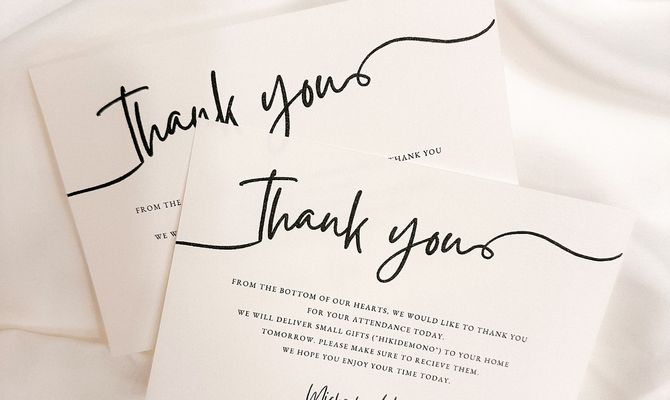 Thank you
THANK YOU
FROM THE
WE W
Thank you
FROM THE BOTTOM OF OUR HEARTS, WE WOULD LIKE TO THANK YOU
FOR YOUR ATTENDANCE TODAY.
WE WILL DELIVER SMALL GIFTS ("HIKIDEMONO") TO YOUR HOME
TOMORROW. PLEASE MAKE SURE TO RECIEVE THEM.
WE HOPE YOU ENJOY YOUR TIME TODAY.